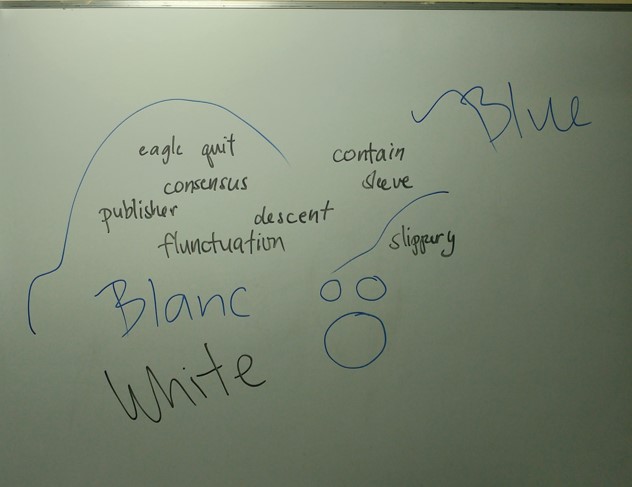 Blue
eagle quit
contain
consensus
sleeve
publisher
descent
flunctuation
slippury
Blanc
White